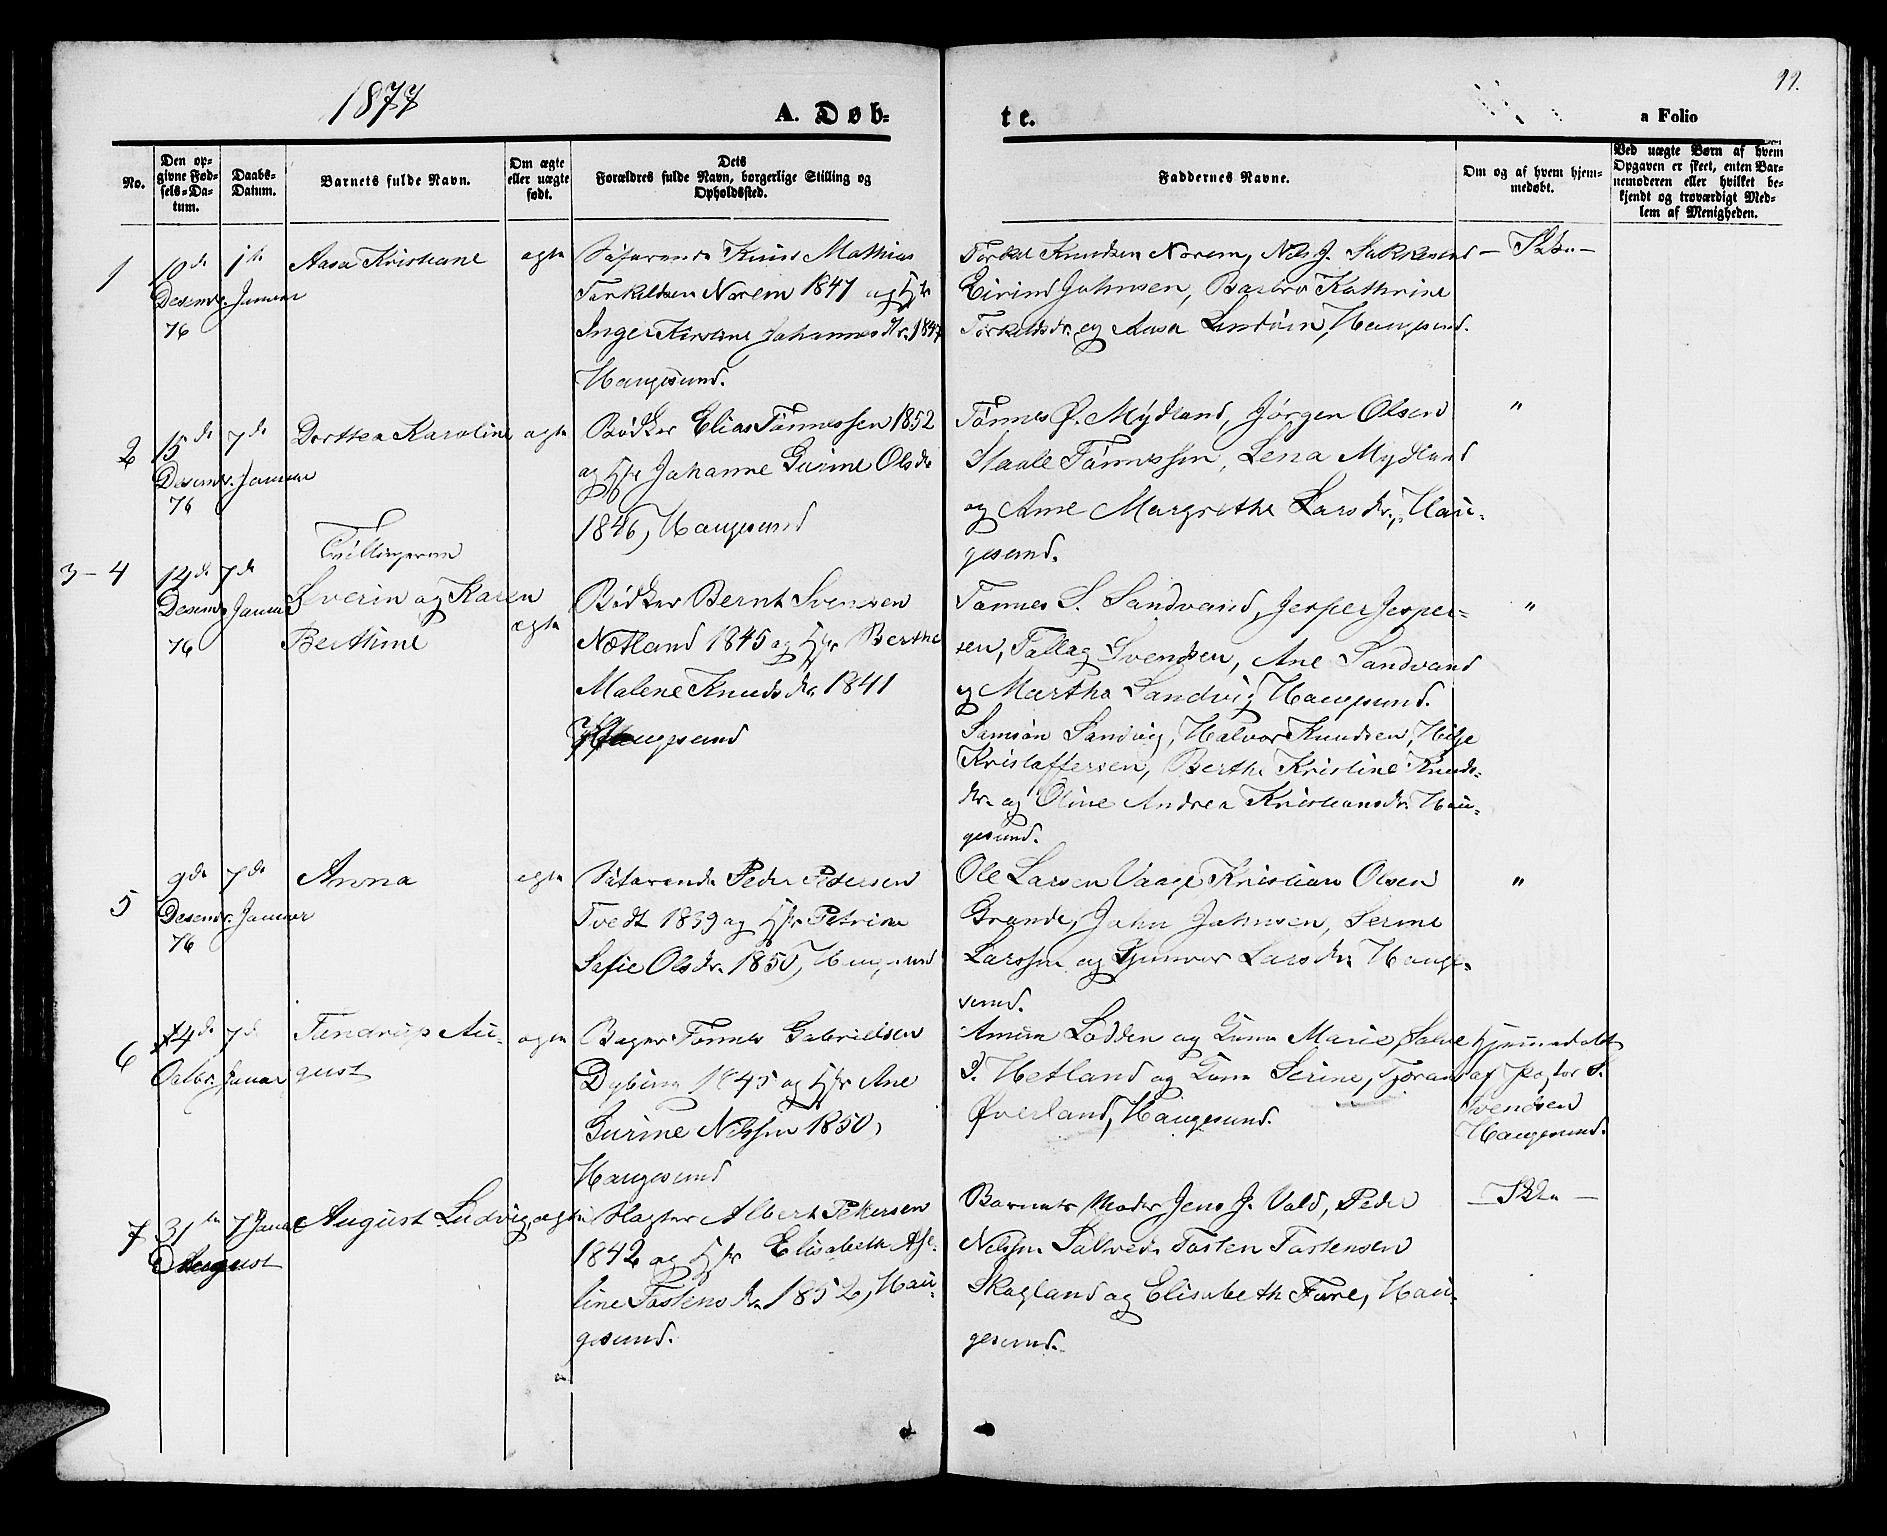 1877
A. Døb-
te.
11.
a Folio
No.
Den op-
givne Fød-
sels-Da-
tum.
Daabs-
Datum.
Barnets fulde Navn.
Om ægte
eller uægte
født.
Dets
Forældres fulde Navn, borgerlige Stilling og
Opholdssted.
Faddernes Navne.
Om og af hvem hjem-
medøbt.
Ved uægte Børn af hvem
Opgaven er skeet, enten Bar-
nemoderen eller hvilket be-
kjendt og troværdigt Med-
lem af Menigheden.
1
10de
Desembr.
76
1ste
Januar
Aasa Kristiane
ægte
Søfarende Knud Mathias
Torkeldsen Norem 1847 og Hstr
Inger Kirstine Johannesdtr. 1847
Haugesund.
Torkel Knudsen Norem, Nils J.
Eivind Johnsen, Barbro Kathrine
Torkeldsdr. og Aasa Lindøen, Haugesund.
— Ikke —
2
15de
Desembr.
76
7de
Januar
Dorthea Karoline
ægte
Bødker Elias Tønnessen 1852
og Hstr Johanne Gurine Olsdr
1846, Haugesund
Tønnes Ø. Mydland, Jørgen Olsen
Staale Tønnessen, Lena Mydland
og Ane Margrethe Larsdr., Hau-
gesund.
"
3 - 4
14de
Desembr
76
7de
Januar
Tvillingerne
Severin og Karen
Berthine
ægte
Bødker Bernt Svensen
Nætland 1845 og Hstr Berthe
Malene Knudsdr. 1841
Haugesund
Tønnes S. Sandvand, Jesper Jesper-
sen, Tallag Svendsen, Ane Sandvand
og Martha Sandvig Haugesund.
Samson Sandvig, Halvor Knudsen, Helje
Kristoffersen, Berthe Kristine Knuds-
dr. og Oline Andrea Kristiansdr. Hau-
gesund.
"
5
9de
Desembr.
76
7de
Januar
Anna
ægte
Søfarende Peder Petersen
Tvedt 1839 og Hstr Petrine
Sofie Olsdr. 1850, Haugesund
Ole Larsen Vaage Kristian Olsen
Grande, John Johnsen, Serine
Larssen og Gunvor Larsdr. Hauge-
sund.
"
6
14de
Oktbr.
7de
Januar
Tendrup Au-
gust
ægte
Bager Tønnes Gabrielsen
Dybing 1845 og Hstr Ane
Gurine Nilssen 1850,
Haugesund
Lodden og Kone Marie,
Hetland og Kone Serine,
Øverland, Haugesund.
Hjemmedøbt
af Pastor S.
Svendsen
Haugesund.
7
31te
August
7 Januar
August Ludvig
ægte
Slagter Albert Pettersen
1842 og Hstr Elisabeth Ase-
line Tostensdr. 1852, Hau-
gesund.
Barnets Moder, Jens J. Vold, Peder
Nilssen Saltveit Tosten Tostensen
Skogland og Elisabeth Føre, Hau-
gesund.
— Ikke —